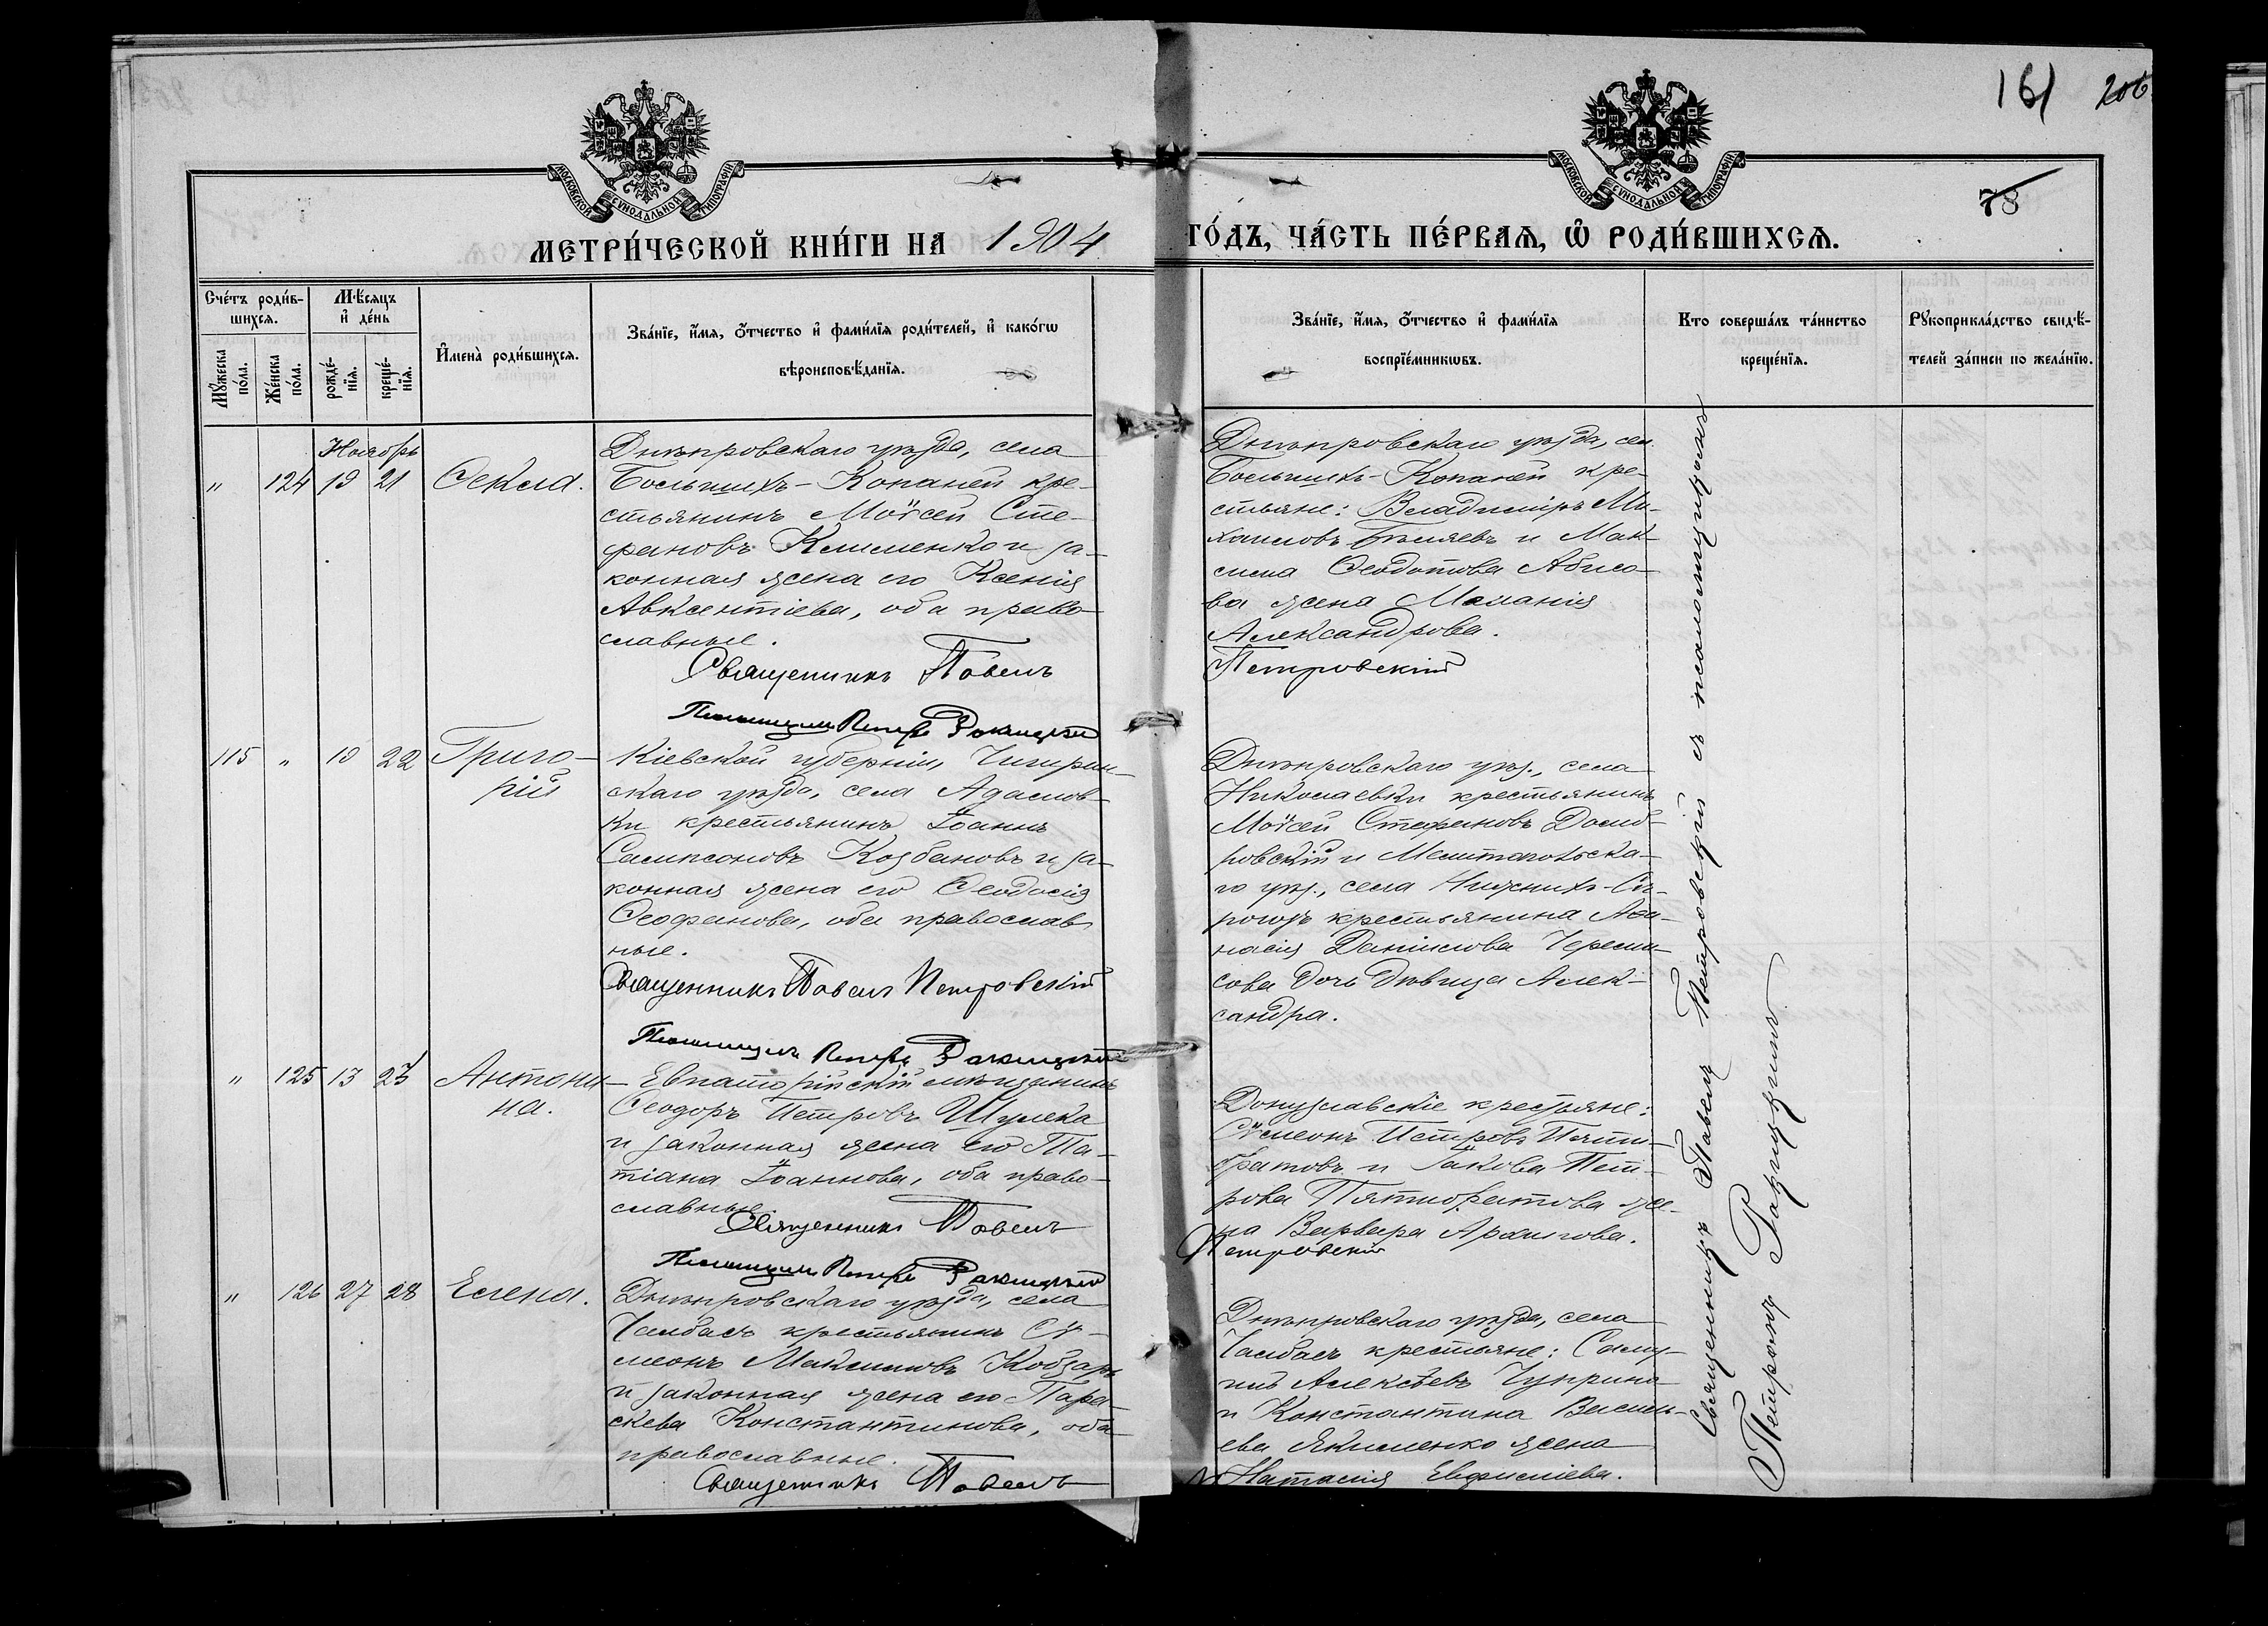 161 206
78
МОСКОВСКОЙ СУНОДАЛЬНОЙ ТИПОГРАФІИ
МОСКОВСКОЙ СУНОДАЛЬНОЙ ТИПОГРАФІИ
МЕТРИ́ЧЕСКОЙ КНИ́ГИ НА 1904 ГО́ДЪ, ЧА́СТЬ ПЕ́РВАѦ, Ѡ РОДИ́ВШИХСѦ.
Сче́тъ роди́в-
шихсѧ.
Мѣ́сѧцъ
и҆ де́нь
Мꙋ́жеска
по́ла.
Же́нска
по́ла.
рожде́-
нїѧ.
креще́-
нїѧ.
И҆мена̀ роди́вшихсѧ.
Зва́нїе, и҆́мѧ, ѻ҆́тчество и҆ фами́лїѧ роди́телей, и҆ како́гѡ
вѣроисповѣ́данїѧ.
Зва́нїе, и҆́мѧ, ѻ҆́тчество и҆ фами́лїѧ
воспрїе́мникѡвъ.
Кто соверша́лъ та́инство
креще́нїѧ.
Рꙋкоприкла́дство свидѣ́-
телей за́писи по жела́нїю.
Ноябрь
" 124 19 21 Ѳекла.
Днѣпровскаго уѣзда, села
Большихъ-Копаней кре-
стьянинъ Моѵсей Сте-
фановъ Клименко и за-
конная жена его Ксенія
Авксентіева, оба право-
славные.
Священникъ Павелъ
Псаломщикъ Петръ Ракицкій
Днѣпровскаго уѣзда, села
Большихъ-Копаней кре-
стьяне: Владиміръ Ми-
хаиловъ Бѣляевъ и Мак-
сима Ѳеодотова
жена Меланія
Александрова.
Петровскій
115 " 10 22 Григо-
рій
Кіевской губерніи, Чигирин-
скаго уѣзда, села Адамов-
ки крестьянинъ Іоаннъ
Сампсоновъ Козбановъ и за-
конная жена его Ѳеодосія
Ѳеофанова, оба православ-
ные.
Священникъ Павелъ Петровскій
Псаломщикъ Петръ Ракицкій
Днѣпровскаго уѣз., села
Николаевки крестьянинъ
Моѵсей Стефановъ Домб-
ровскій и Мелитопольска-
го уѣз., села Нижнихъ-Сѣ-
рогозъ крестьянина Аѳа-
насія Даніилова Череми-
сова дочь дѣвица Алек-
сандра.
" 125 13 23 Антони-
на.
Евпаторійскій мѣщанинъ
Ѳеодоръ Петровъ Шулека
и законная жена его Та-
тіана Іоаннова, оба право-
славные.
Священникъ Павелъ
Псаломщикъ Петръ Ракицкій
Донузлавскіе крестьяне:
Сѵмеонъ Петровъ Пяти-
братовъ и Іакова Пет-
рова Пятибратова же-
на Варвара Архипова.
Петровскій
" 126 27 28 Елена.
Днѣпровскаго уѣзда, села
Чалбасъ крестьянинъ Сѵ-
меонъ Максимовъ Кобзарь
и законная жена его Пара-
скева Константинова, оба
православные.
Священникъ Павелъ
Днѣпровскаго уѣзда, села
Чалбасъ крестьяне: Саму-
илъ Алексѣевъ Чуприна
и Константина Василь-
ева Якименко жена
Наталія Евфиміева.
Священникъ Павелъ Петровскій съ псаломщикомъ
Петромъ Ракицкимъ